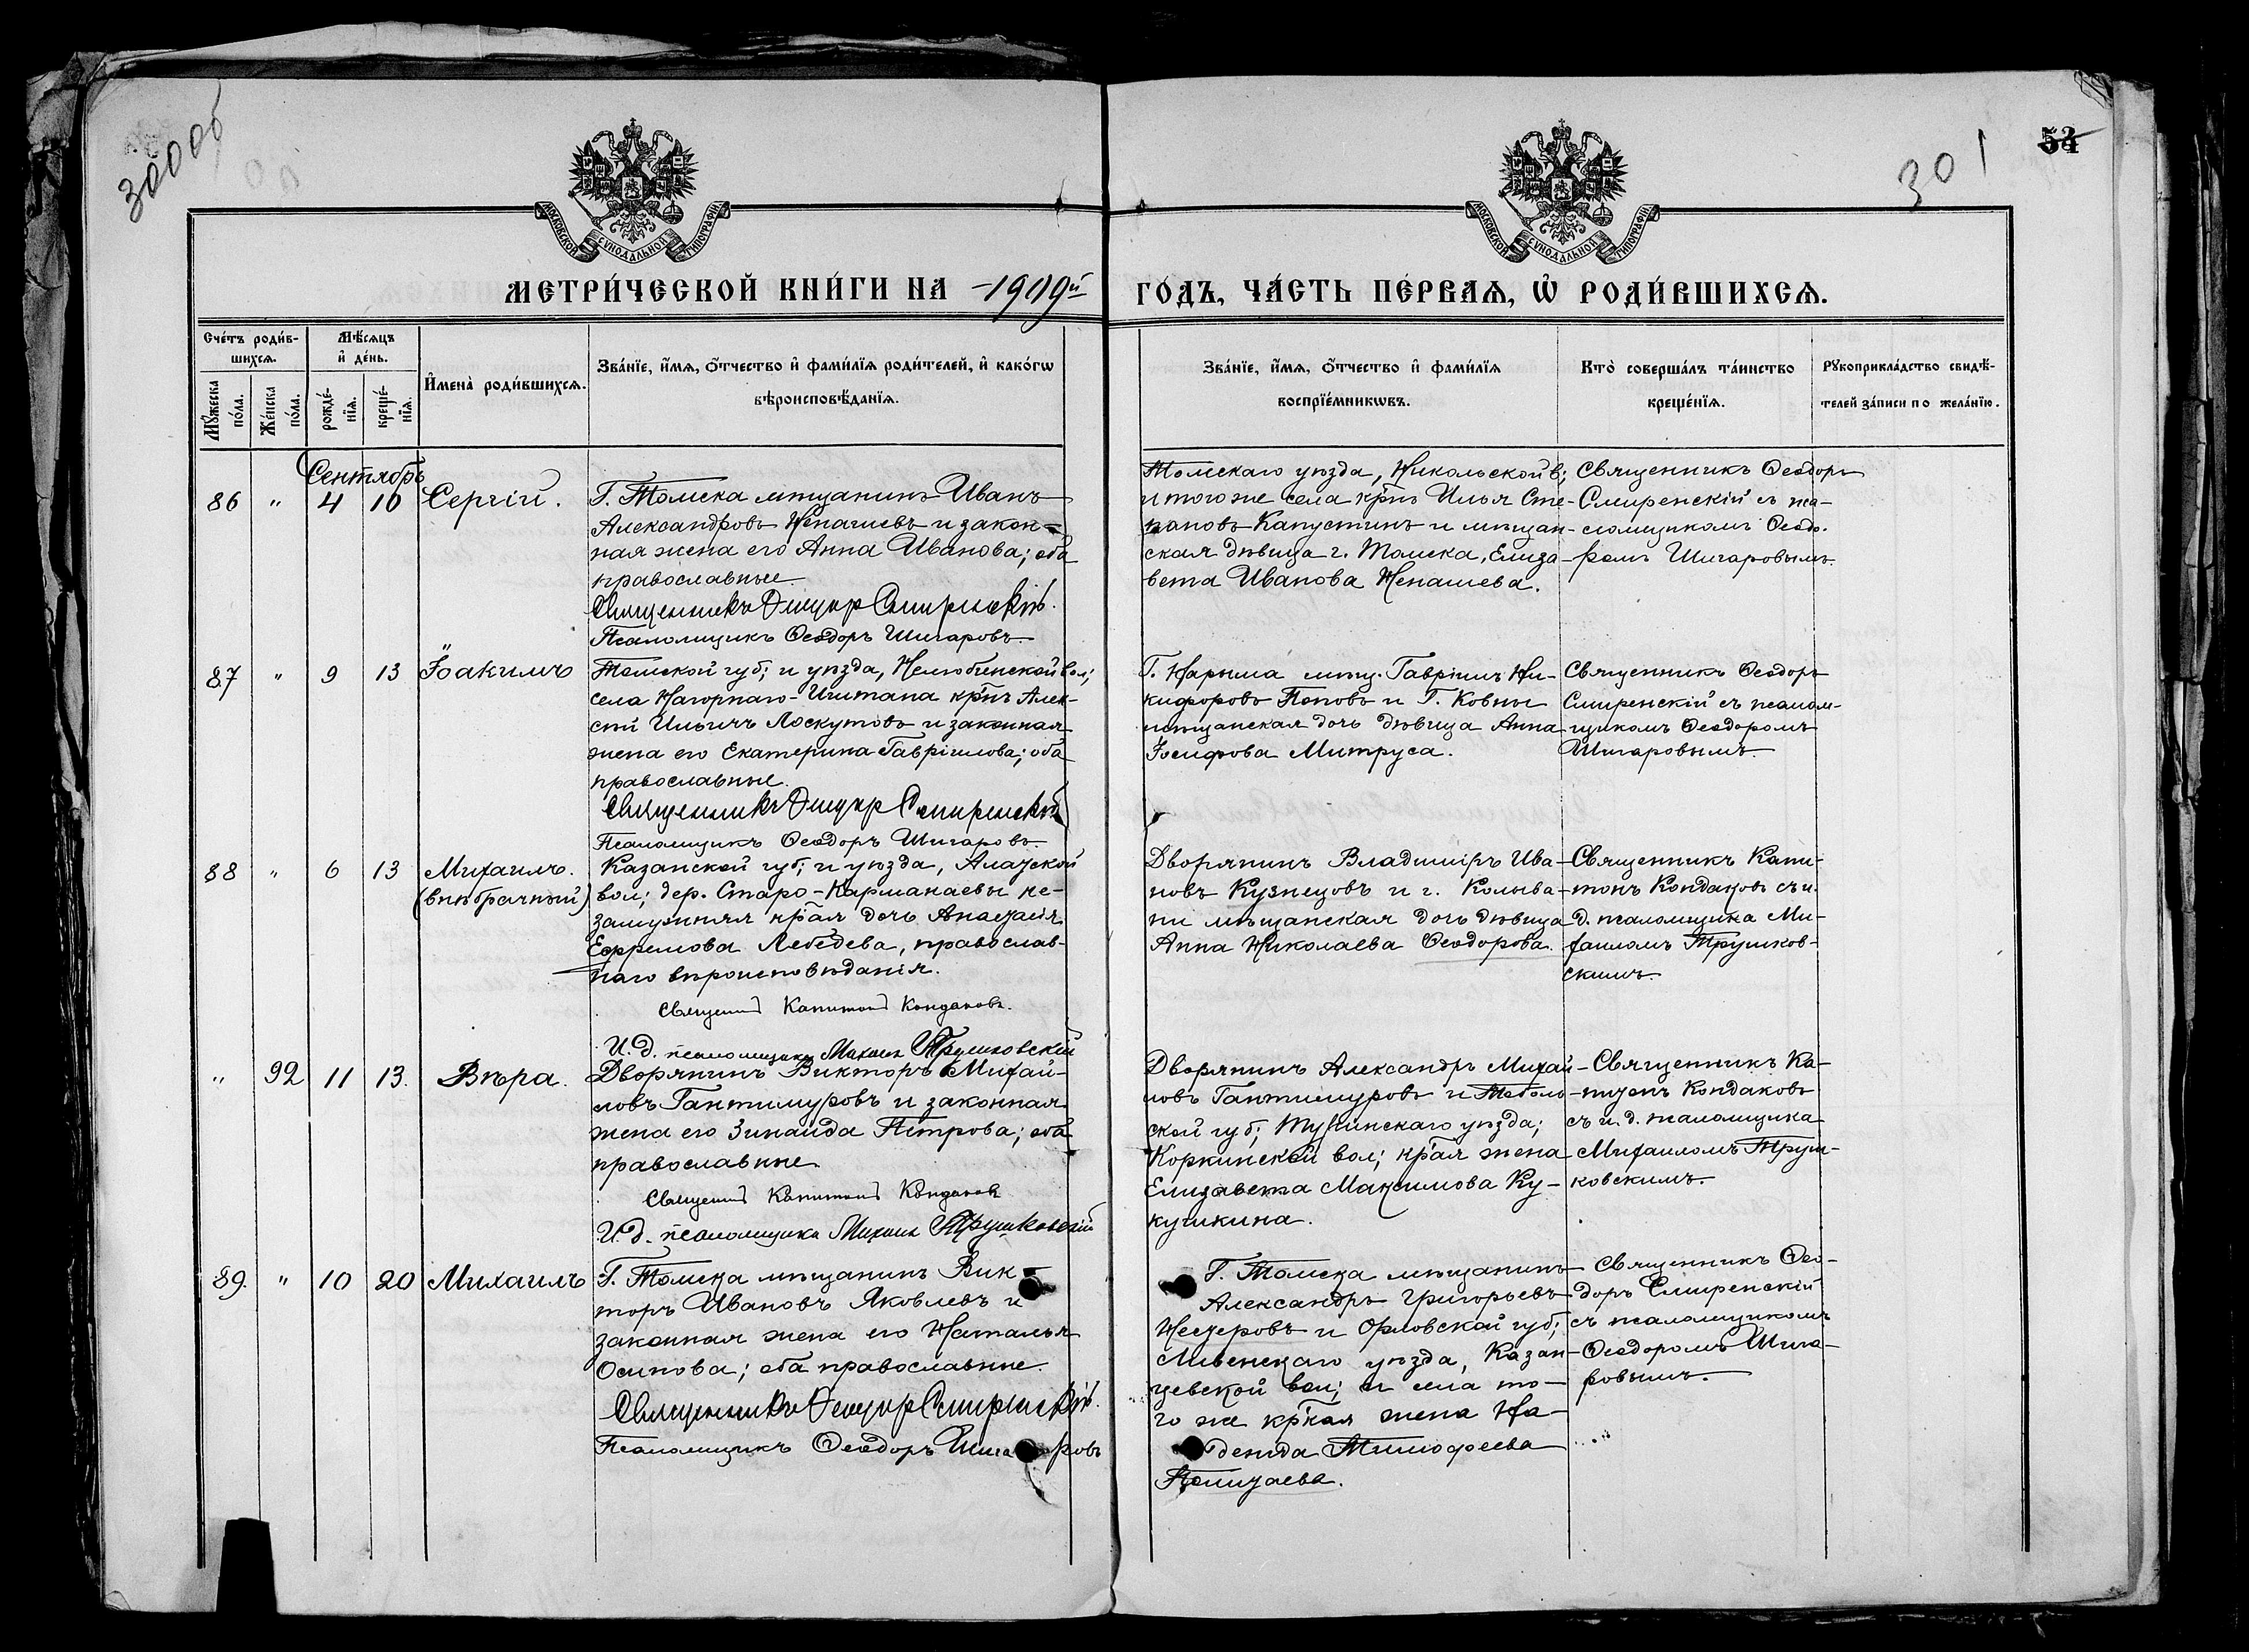 300об
301
53
МОСКОВСКОЙ СѴНОДАЛЬНОЙ ТИПОГРАФІИ
МОСКОВСКОЙ СѴНОДАЛЬНОЙ ТИПОГРАФІИ
МЕТРИ́ЧЕСКОЙ КНИ́ГИ НА 1909й
ГО́ДЪ, ЧА́СТЬ ПЕ́РВАѦ, Ѽ РОДИ́ВШИХСѦ.
Сче́тъ роди́в-
шихсѧ.
Мꙋ́жеска по́ла.
Же́нска по́ла.
Мѣ́сѧцъ
и҆ де́нь.
рожде́-нїѧ.
креще́-нїѧ.
И҆мена̀ роди́вшихсѧ.
Зва́нїе, и҆́мѧ, ѻ҆́тчество и҆ фами́лїѧ роди́телей, и҆ како́гѡ
вѣроисповѣ́данїѧ.
Зва́нїе, и҆́мѧ, ѻ҆́тчество и҆ фами́лїѧ
воспрїе́мникѡвъ.
Кто̀ соверша́лъ та́инство
креще́нїѧ.
Рꙋкоприкла́дство свидѣ́-
телей за́писи по жела́нїю.
Сентябрь
86 " 4 10 Сергій.
Г. Томска мѣщанинъ Иванъ
Александровъ Ненашевъ и закон-
ная жена его Анна Иванова; оба
православные
Священникъ Ѳеодоръ Смиренскій.
Псаломщикъ Ѳеодоръ Шигаровъ.
Томскаго уѣзда, Никольской в;
и того же села кр̃нъ Илья Сте-
пановъ Капустинъ и мѣщан-
ская дѣвица г. Томска, Елиза-
вета Иванова Ненашева.
Священникъ Ѳеодоръ
Смиренскій съ пса-
ломщикомъ Ѳеодо-
ромъ Шигаровымъ.
87 " 9 13 Іоакимъ
Томской губ; и уѣзда, Нелюбинской вол;
села Нагорнаго-Иштана кр̃нъ Алек-
сѣй Ильичъ Лоскутовъ и законная
жена его Екатерина Гавріилова; оба
православные.
Священникъ Ѳеодоръ Смиренскій
Псаломщикъ Ѳеодоръ Шигаровъ.
Г. Нарыма мѣщ. Гавріилъ Ни-
кифоровъ Поповъ и Г. Ковны
мѣщанская дочь дѣвица Анна
Іосифова Митруса.
Священникъ Ѳеодоръ
Смиренскій съ псалом-
щикомъ Ѳеодоромъ
Шигаровымъ.
88 " 6 13 Михаилъ.
(внѣбрачный)
Казанской губ; и уѣзда, Алатской
вол; дер. Старо-Кармакаевы не-
замужняя кр̃ая дочь Анастасія
Ефремова Лебедева, православ-
наго вѣроисповѣданія.
Священникъ Капитонъ Кондаковъ.
И. д. псаломщика Михаилъ Трушковскій
Дворянинъ Владиміръ Ива-
новъ Кузнецовъ и г. Колыва-
ни мѣщанская дочь дѣвица
Анна Николаева Ѳеодорова.
Священникъ Капи-
тонъ Кондаковъ съ и.
д. псаломщика Ми-
хаиломъ Трушков-
скимъ.
" 92 11 13. Вѣра.
Дворянинъ Викторъ Михай-
ловъ Гантимуровъ и законная
жена его Зинаида Петрова; оба
православные.
Священникъ Капитонъ Кондаковъ
И. д. псаломщика Михаилъ Трушковскій
Дворянинъ Александръ Михай-
ловъ Гантимуровъ и Тоболь-
ской губ; Туринскаго уѣзда;
Коркинской вол; кр̃ая жена
Елизавета Максимова Ку-
кушкина.
Священникъ Ка-
питонъ Кондаковъ
съ и. д. псаломщика
Михаиломъ Труш-
ковскимъ.
89. " 10 20 Михаилъ
Г. Томска мѣщанинъ Вик-
торъ Ивановъ Яковлевъ и
законная жена его Наталья
Осипова; оба православные.
Священникъ Ѳеодоръ Смиренскій.
Псаломщикъ Ѳеодоръ Шигаровъ
Г. Томска мѣщанинъ
Александръ Григорьевъ
Нестеровъ и Орловской губ;
Ливенскаго уѣзда, Казан-
цевской вол; и села то-
го же кр̃ная жена На-
дежда Тимофеева
Полигаева.
Священникъ Ѳео-
доръ Смиренскій
съ псаломщикомъ
Ѳеодоромъ Шига-
ровымъ.